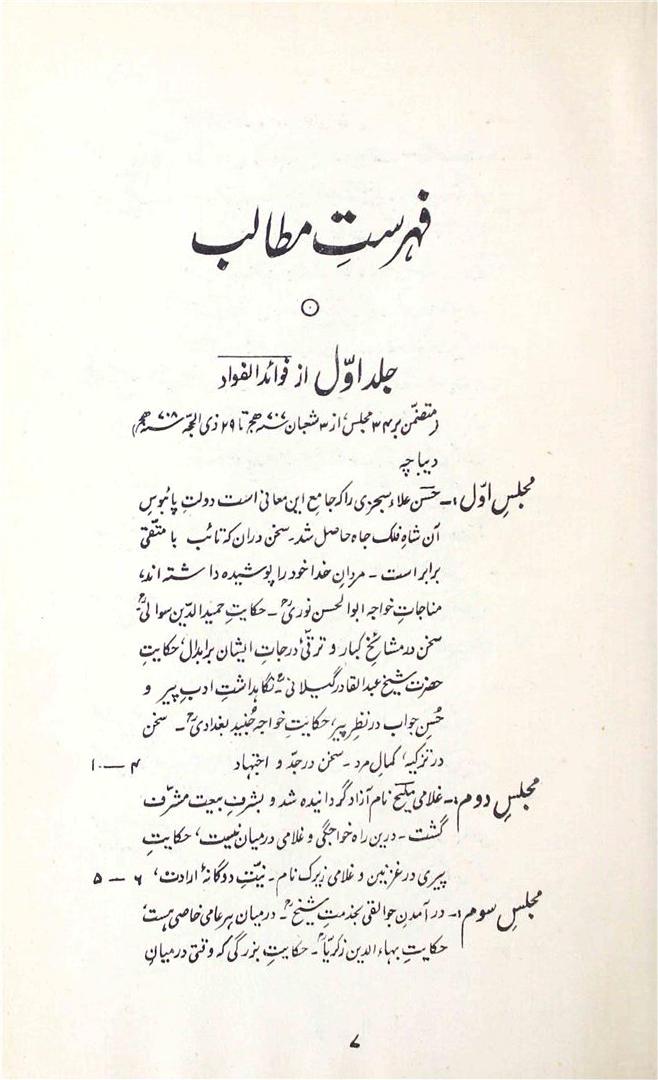 فہرستِ مطالب
جلد اوّل از فوائد الفواد
(متضمّن بر ۳۴ مجلس، از ۳ شعبان ۷۰۷ھ تا ۲۹ ذی الحجّہ ۷۰۸ھ)
دیباچہ
مجلسِ اوّل:۔ حسن علاء سجزی را کہ جامع این معانی است دولتِ پائبوسِ
آن شاہِ فلک جاہ حاصل شد۔ سخن دران کہ تائب با متّقی
برابر است ۔ مردانِ خدا خود را پوشیدہ داشتہ اند،
مناجاتِ خواجہ ابوالحسن نوریؒ۔ حکایتِ حمید الدّین سوالیؒ
سخن در مشائخِ کبار و ترقّیِ درجاتِ ایشان بر ابدال، حکایتِ
حضرت شیخ عبدالقادر گیلانیؒ نگاہداشتِ ادبِ پیر و
حُسنِ جواب در نظرِ پیر، حکایتِ خواجہ جُنید بغدادیؒ ۔ سخن
در تزکیہ، کمالِ مرد ۔ سخن در جدّ و اجتہاد ۴ — ۱۰
مجلسِ دوم:۔ غلامی ملیح نام آزاد گردانیدہ شد و بشرفِ بیعت مشرّف
گشت ۔ درین راہ خواجگی و غلامی درمیان نیست، حکایتِ
پیری در غزنین و غلامی زیرک نام ۔ نیّتِ دوگانۂ ارادت، ۶ — ۵
مجلسِ سوم:۔ در آمدنِ جوالقی بخدمتِ شیخؒ۔ درمیانِ ہر عامی خاصی ہست،
حکایتِ بہاء الدین زکریّاؒ ۔ حکایتِ بزرگی کہ وقتی درمیانِ
۷